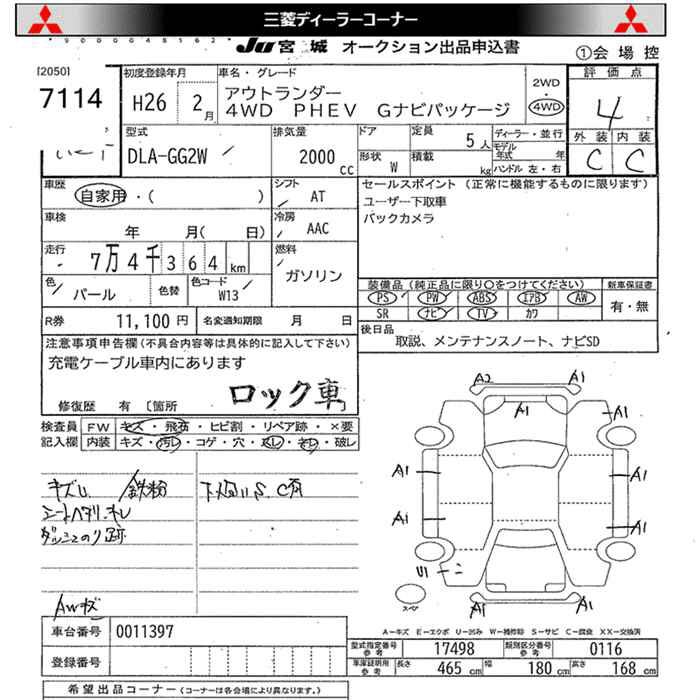 三菱ディーラーコーナー
JU 宮城 オークション出品申込書
①会場控
[2050]
7114
初度登録年月
H26 2月
車名・グレード
アウトランダー
4WD PHEV Gナビパッケージ
2WD
・
4WD
評価点
4
外装 内装
C C
型式
DLA-GG2W
排気量
2000 cc
ドア
定員
5人
ディーラー・並行
モデル年式 年
形状
W
積載
kg
ハンドル 左・右
車歴
自家用・( )
シフト
AT
車検
年 月( 日)
冷房
AAC
走行
7万4千364km
燃料
ガソリン
色
パール
色替
色コード
W13
R券 11,100円
名変通知期限 月 日
セールスポイント (正常に機能するものに限ります)
ユーザー下取車
バックカメラ
装備品 (純正品に限り○をつけてください)
PS PW ABS エアB AW
SR ナビ TV カワ
新車保証書
有・無
後日品
取説、メンテナンスノート、ナビSD
注意事項申告欄(不具合内容等は具体的に記入して下さい)
充電ケーブル車内にあります
修復歴 有 〔箇所 〕
ロック車
検査員記入欄
FW キズ・飛石・ヒビ割・リペア跡・×要
内装 キズ・汚レ・コゲ・穴・スレ・キレ・破レ
キズU 鉄粉
シートヘタリ、キレ
ダッシュのり跡
AWキズ
A2 A1
A1
A1
A1 A1
A1 A1
A1 A1
スペア
A-キズ E-エクボ U-凹み W-補修跡 S-サビ C-腐食 XX-交換済
車台番号 0011397
登録番号
型式指定番号 参考 17498
類別区分番号 参考 0116
車庫証明用 参考 長さ 465cm 幅 180cm 高さ 168cm
希望出品コーナー (コーナーは各会場により異なります。)